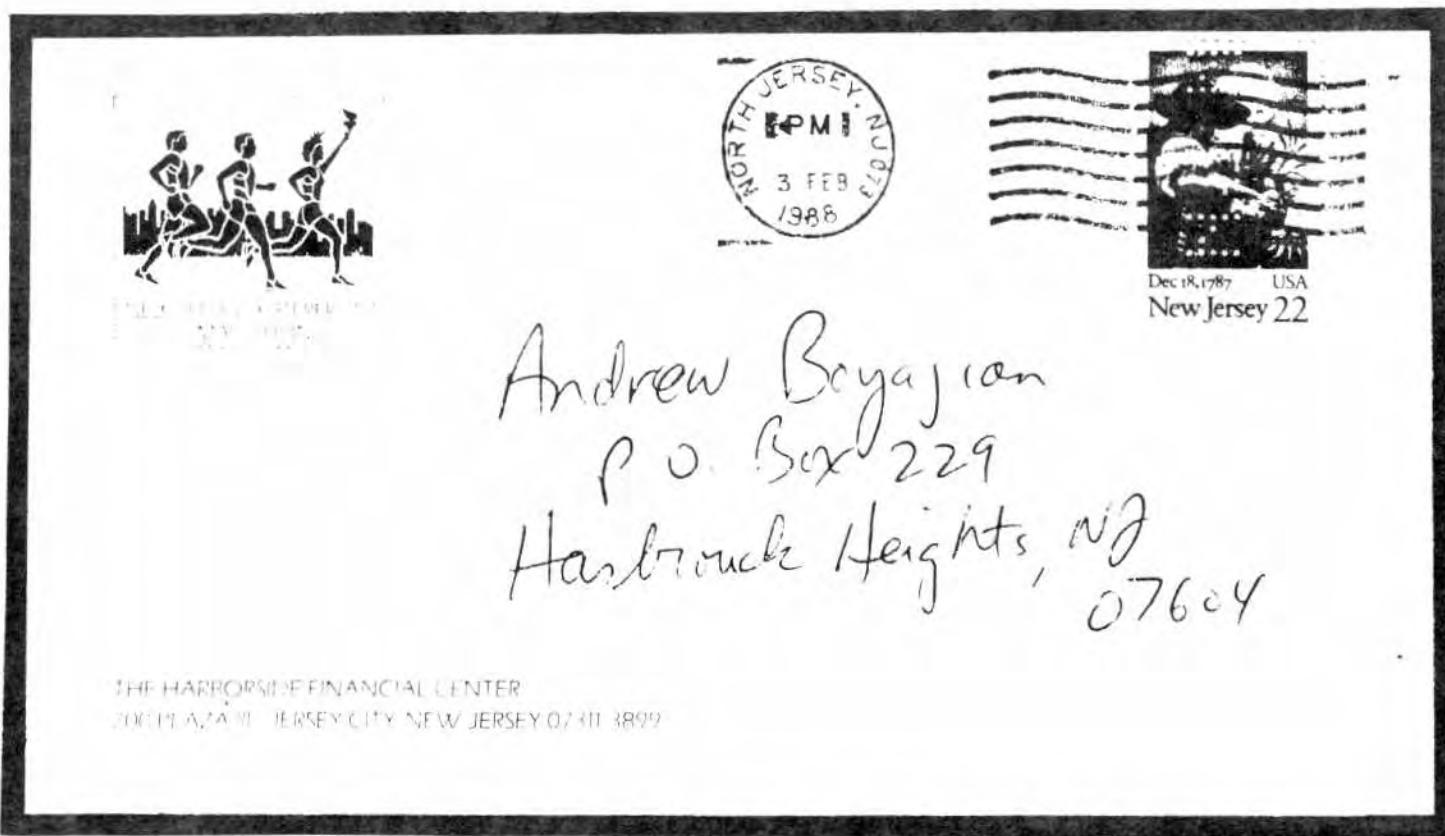 NORTH JERSEY, NJ 073
PM
3 FEB
1988
Dec 18, 1787 USA
New Jersey 22
Andrew Boyajian
P O. Box 229
Hasbrouck Heights, NJ
07604
THE HARBORSIDE FINANCIAL CENTER
PLAZA JERSEY CITY NEW JERSEY 07311 3899